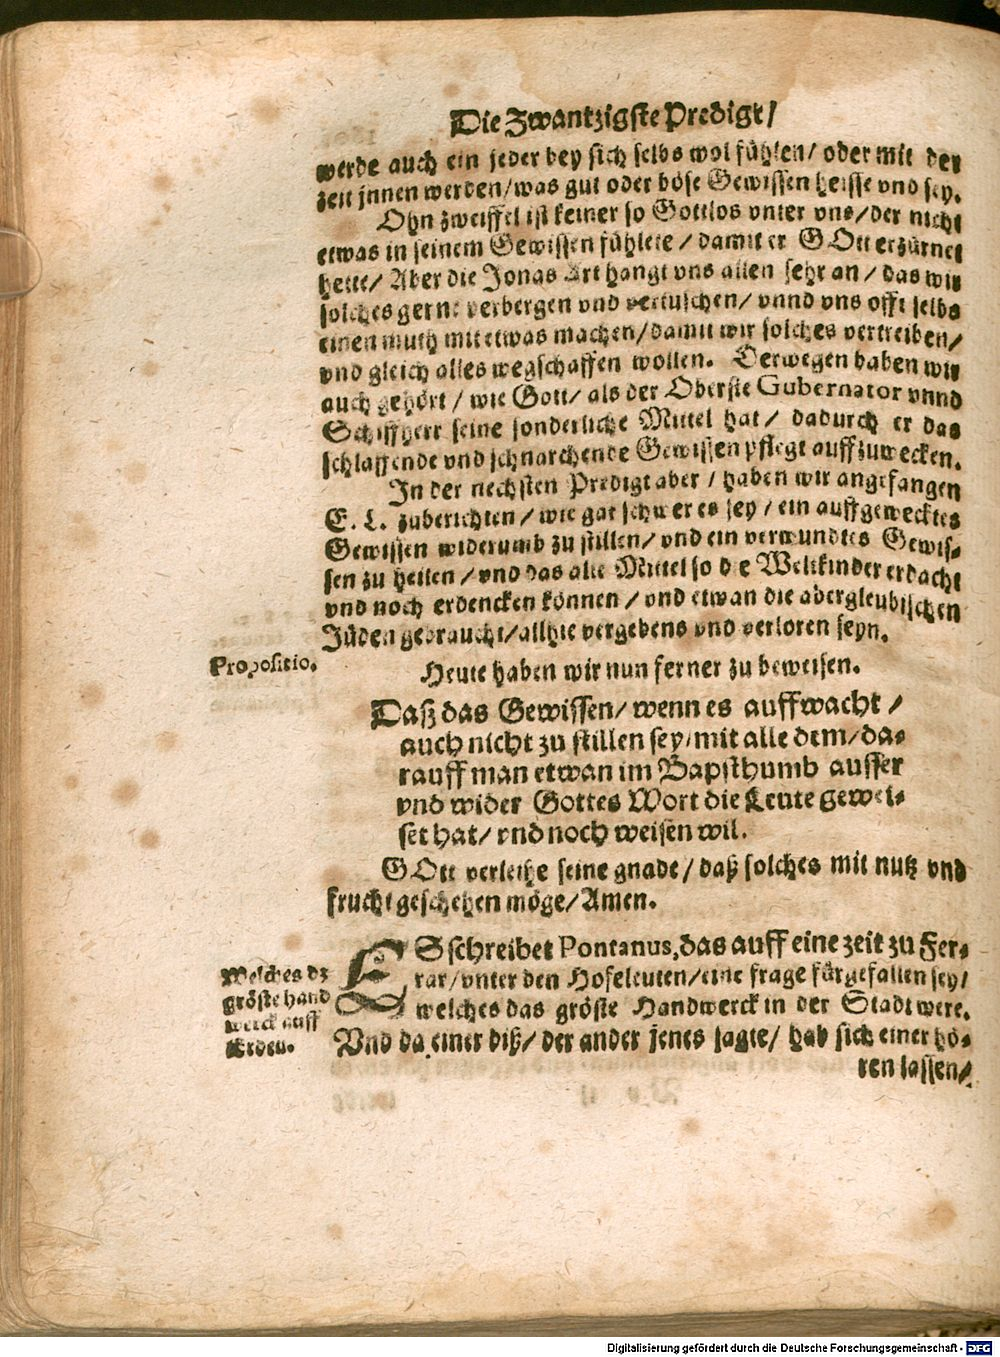 Die Zwantzigste Predigt/
werde auch ein jeder bey sich selbs wol fühlen/ oder mit der
zeit jnnen werden/was gut oder böse Gewissen heisse vnd sey.
Ohn zweiffel ist keiner so Gottlos vnter vns/der nicht
etwas in seinem Gewissen fühlete / damit er GOtt erzürnet
hette/ Aber die Jonas Art hangt vns allen sehr an / das wir
solches gerne verbergen vnd vertuschen/ vnnd vns offt selbs
einen muth mit etwas machen/damit wir solches vertreiben/
vnd gleich alles wegschaffen wollen. Derwegen haben wir
auch gehört / wie Gott/ als der Oberste Gubernator vnnd
Schiffherr seine sonderliche Mittel hat / dadurch er das
schlaffende vnd schnarchende Gewissen pflegt auffzuwecken.
In der nechsten Predigt aber / haben wir angefangen
E. L. zuberichten / wie gar schwer es sey / ein auffgewecktes
Gewissen widerumb zu stillen/ vnd ein verwundtes Gewis-
sen zu heilen / vnd das alle Mittel so die Weltkinder erdacht
vnd noch erdencken können / vnd etwan die abergleubischen
Jüden gebraucht/allhie vergebens vnd verloren seyn.
Propositio.
Heute haben wir nun ferner zu beweisen.
Daß das Gewissen/ wenn es auffwacht /
auch nicht zu stillen sey/mit alle dem/da-
rauff man etwan im Bapsthumb ausser
vnd wider Gottes Wort die Leute gewei-
set hat/ vnd noch weisen wil.
GOtt verleihe seine gnade/ daß solches mit nutz vnd
frucht geschehen möge/Amen.
Welches dz
gröste hand
werck auff
Erden.
ES schreibet Pontanus,das auff eine zeit zu Fer-
rar/vnter den Hofeleuten/eine frage fürgefallen sey/
welches das gröste Handwerck in der Stadt were.
Vnd da einer diß/ der ander jenes sagte/ hab sich einer hö-
ren lassen/
Digitalisierung gefördert durch die Deutsche Forschungsgemeinschaft - DFG